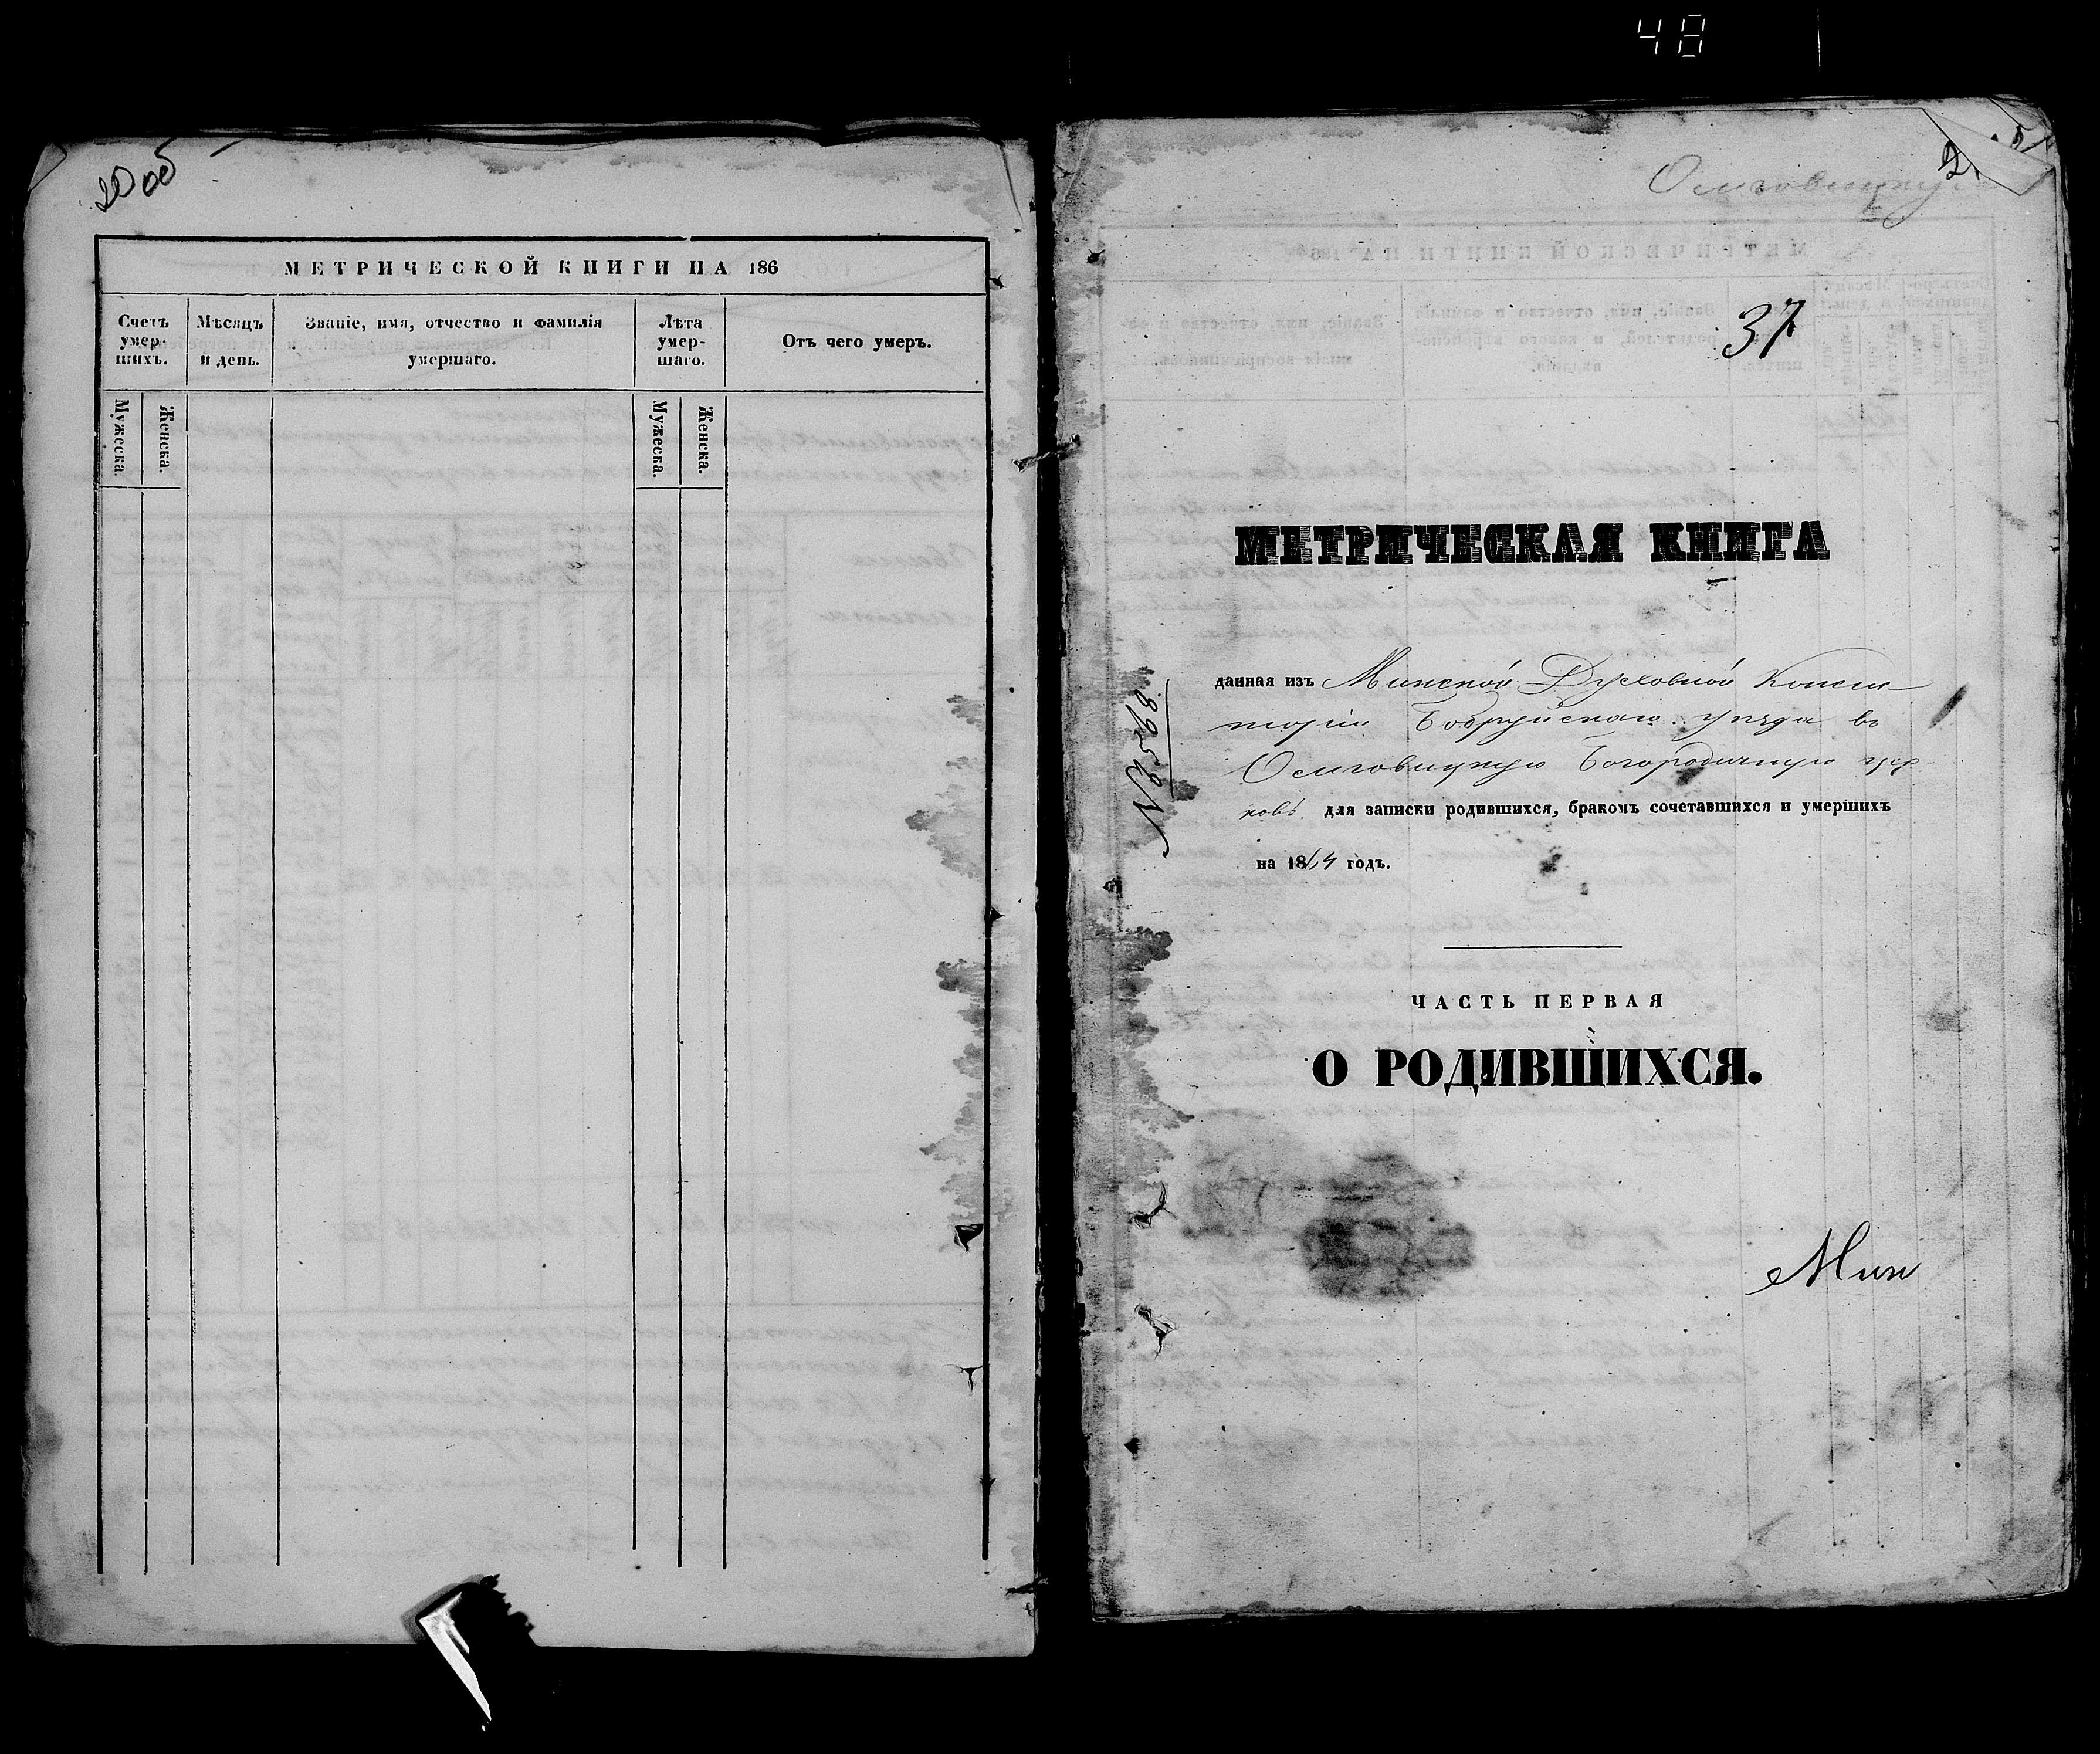 48
20 об
МЕТРИЧЕСКОЙ КНИГИ НА 186
Счетъ умер- шихъ.
Мѣсяцъ и день.
Званіе, имя, отчество и фамилія умершаго.
Лѣта умер- шаго.
Отъ чего умеръ.
Мужеска.
Женска.
Мужеска.
Женска.
Осмговицкую
37
МЕТРИЧЕСКАЯ КНИГА
данная изъ Минской Духовной Консис-
торіи Бобруйскаго уѣзда въ
Богородичную цер-
ковь для записки родившихся, бракомъ сочетавшихся и умершихъ
на 1864 годъ.
№
ЧАСТЬ ПЕРВАЯ
О РОДИВШИХСЯ.
Мин